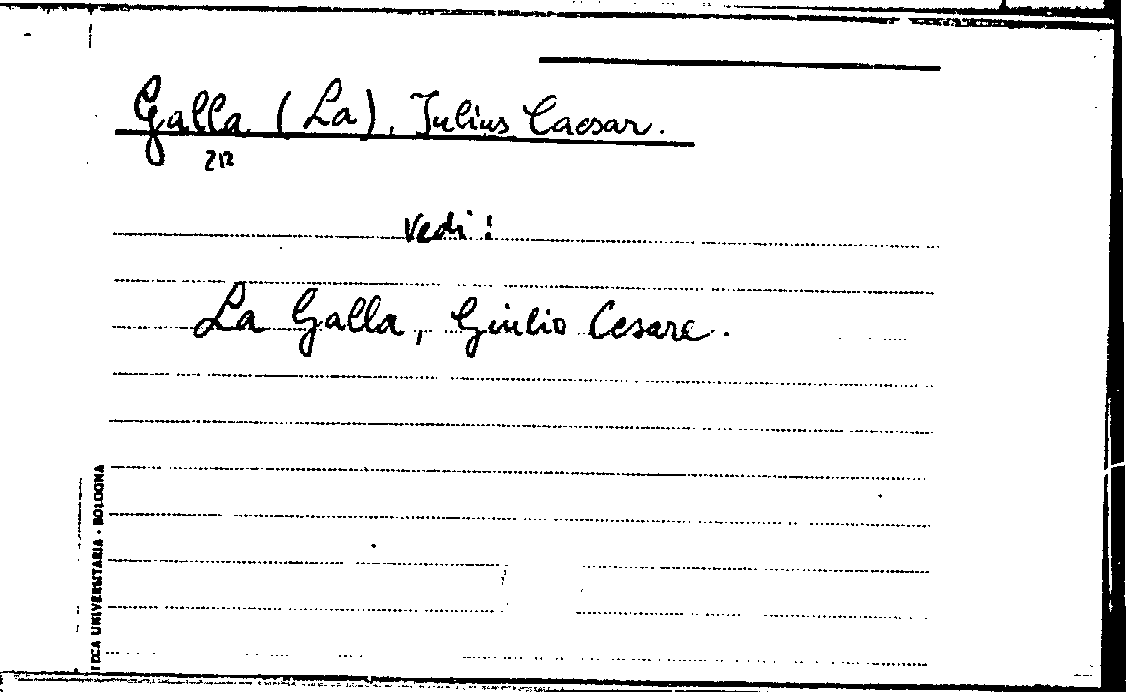 Galla (La), Julius Caesar.
212
vedi:
La Galla, Giulio Cesare.
TECA UNIVERSITARIA - BOLOGNA